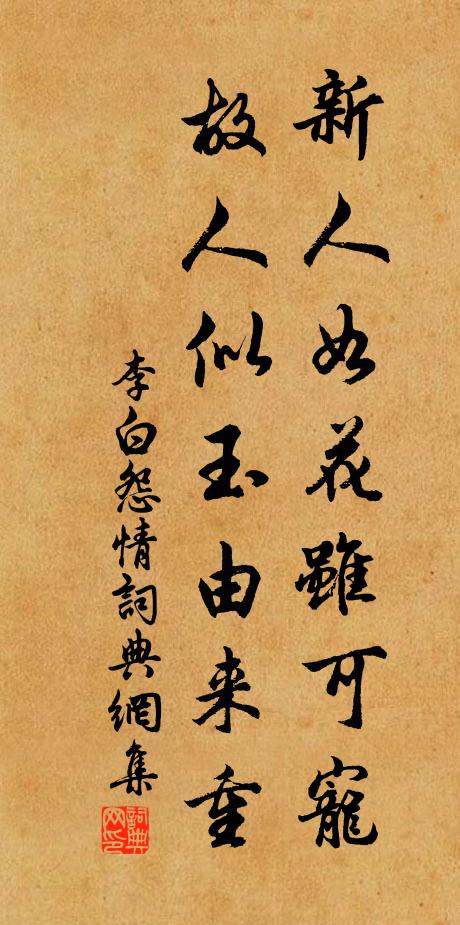 新人如花雖可寵
故人似玉由来重
李白怨情詞典網集
詞典网印